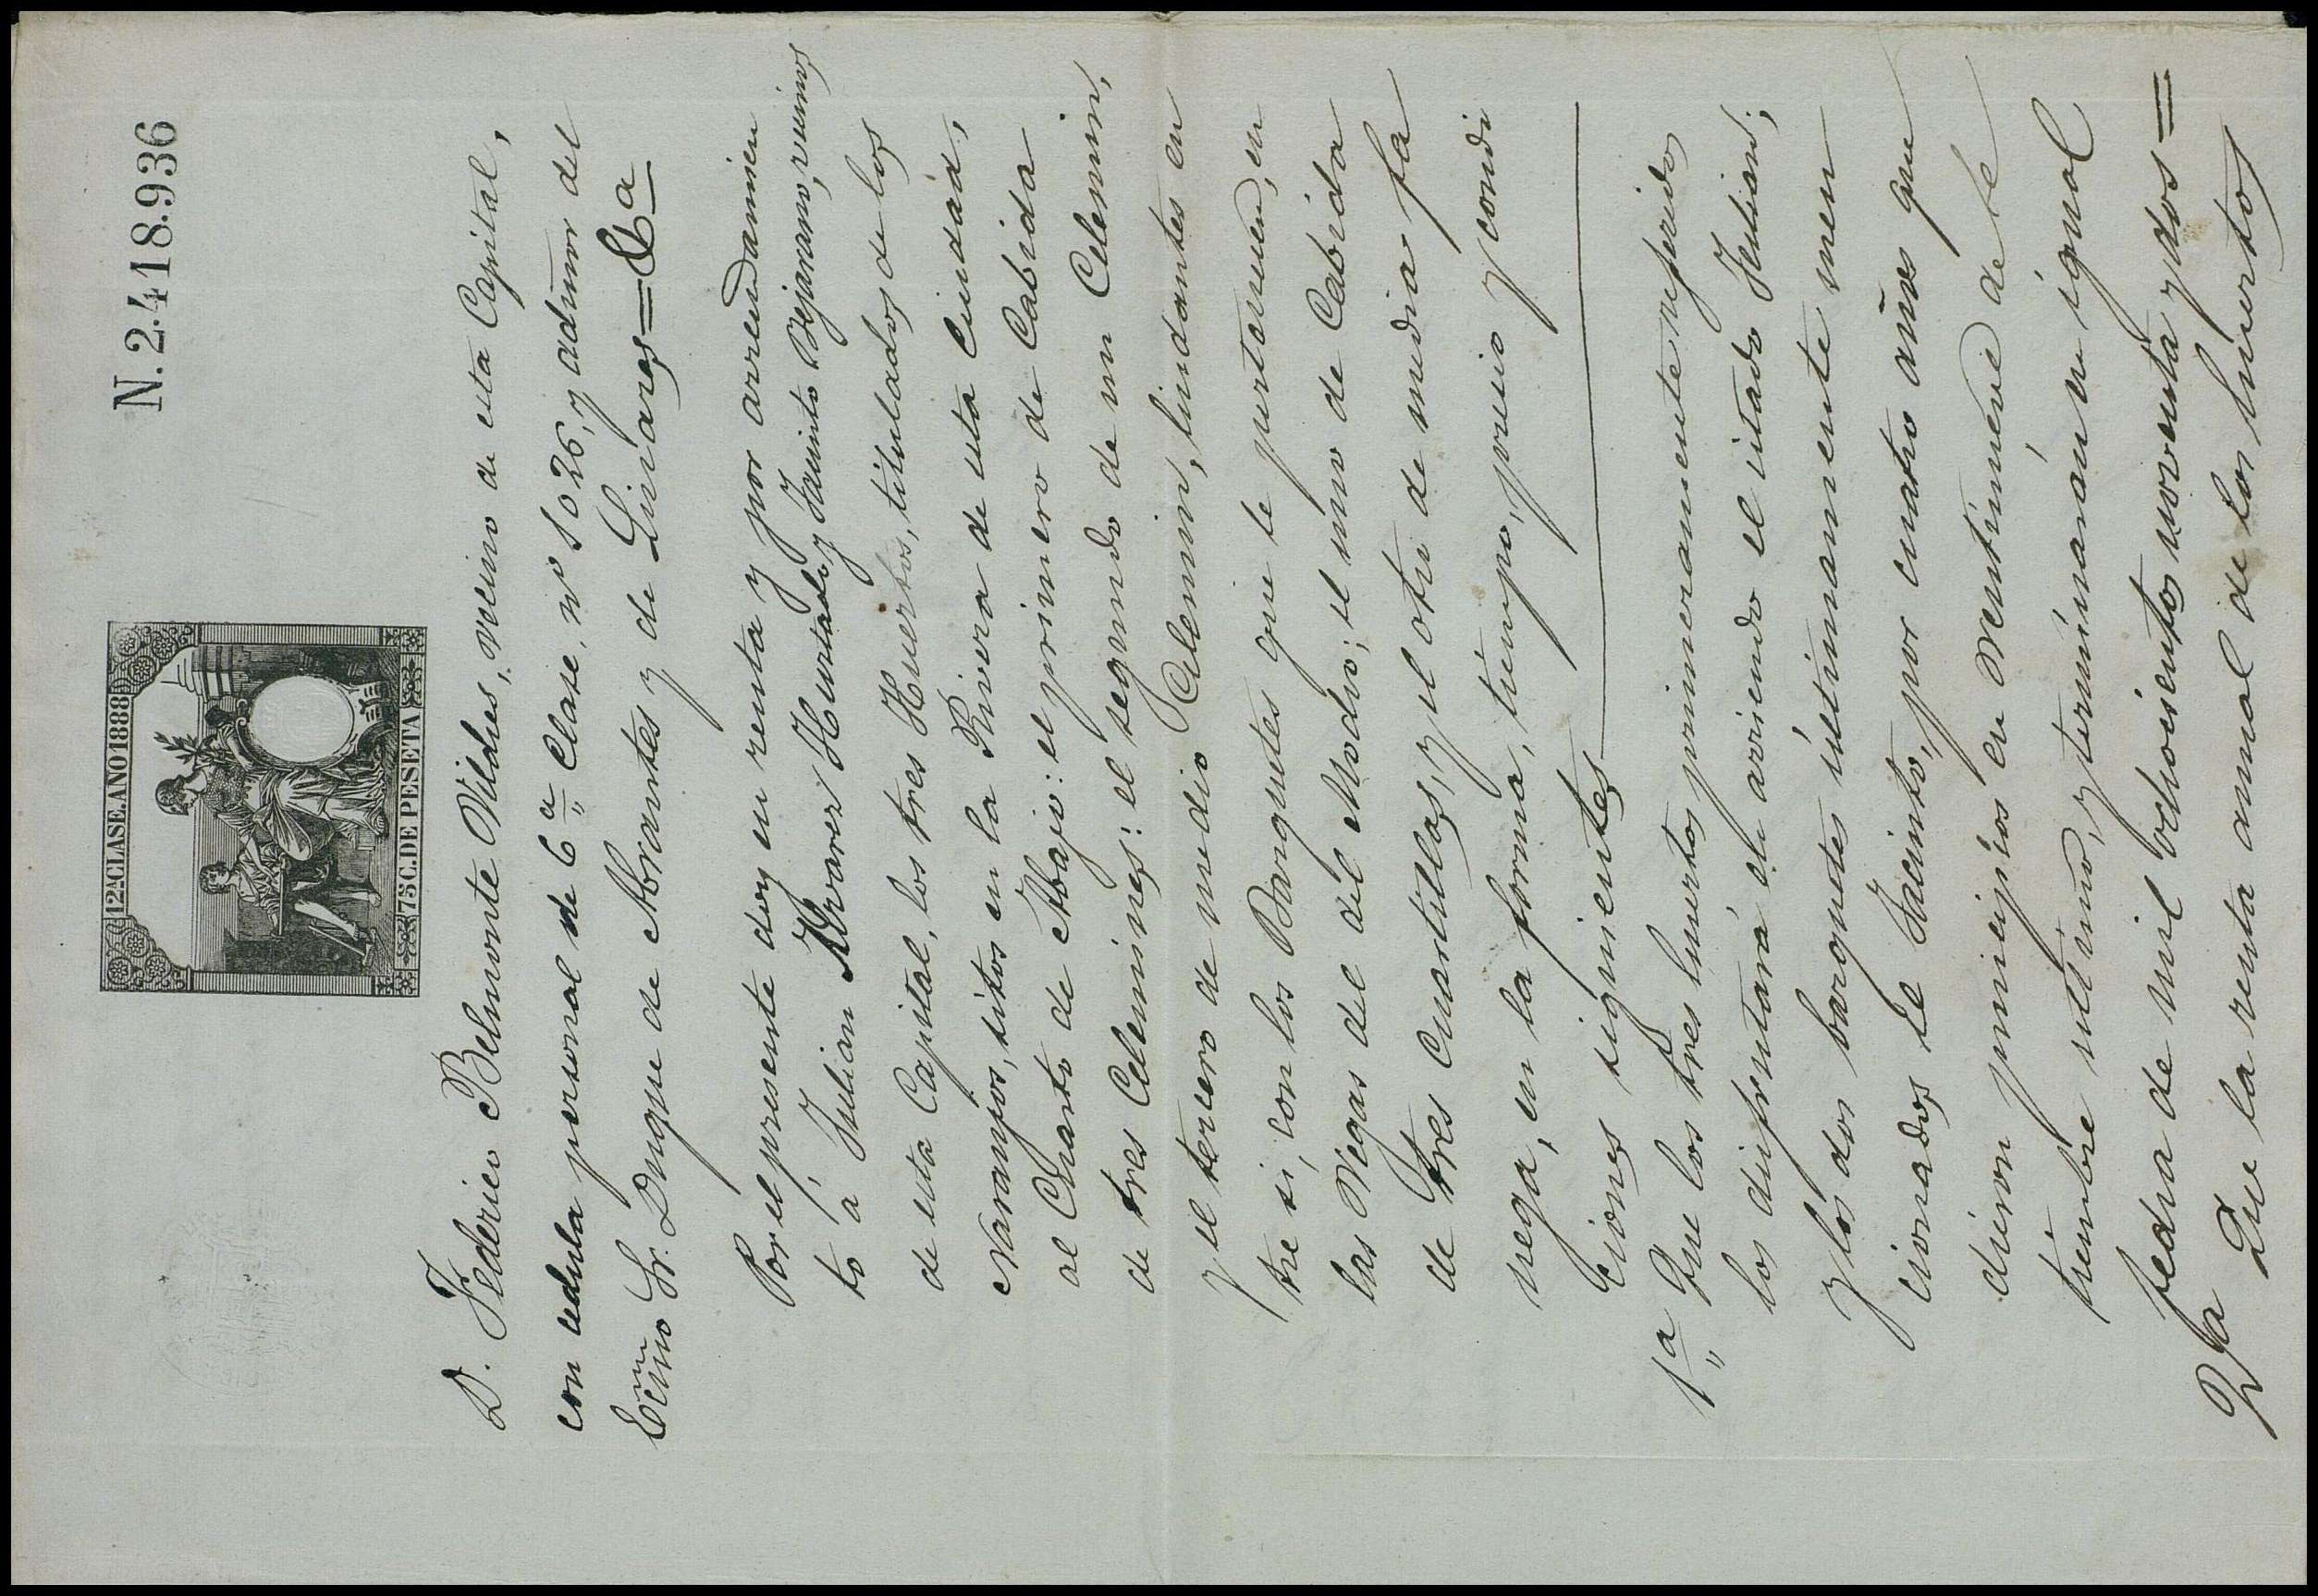 N. 2.418.936
12ª CLASE. AÑO 1888
75 C. DE PESETA
D. Federico Belmonte Vildres, vecino de esta Capital,
con cedula personal de 6ª Clase, nº 1026, y admor del
Excmo Sr. Duque de Abrantes y de Linares = &a
Por el presente doy en renta y por arrendamien
to á Julian Hurtado y Jacinto Bejarano, vecinos
de esta Capital, los tres Huertos, titulados de los
Naranjos, sitos en la Rivera de esta Ciudad,
al Cuarto de Abajo: el primero de Cabida
de tres Celemines: el segundo de un Celemin,
y el tercero de medio Celemin, lindantes en
tre si, con los Barquetes que le pertenecen, en
las Vegas del del Modio; el uno de Cabida
de tres Cuartillas, y el otro de media fa
nega, en la forma, tiempo, precio y condi
ciones siguientes
1ª Que los tres huertos primeramente referidos
los disfrutará en arriendo el citado Julian;
y los dos barquetes últimamente men
cionados el Jacinto, por cuatro años que
dieron principios en Veintinueve de Se
tiembre ultimo, y terminarán en igual
fecha de mil ochocientos noventa y dos =
2ª Que la renta annal de los huertos